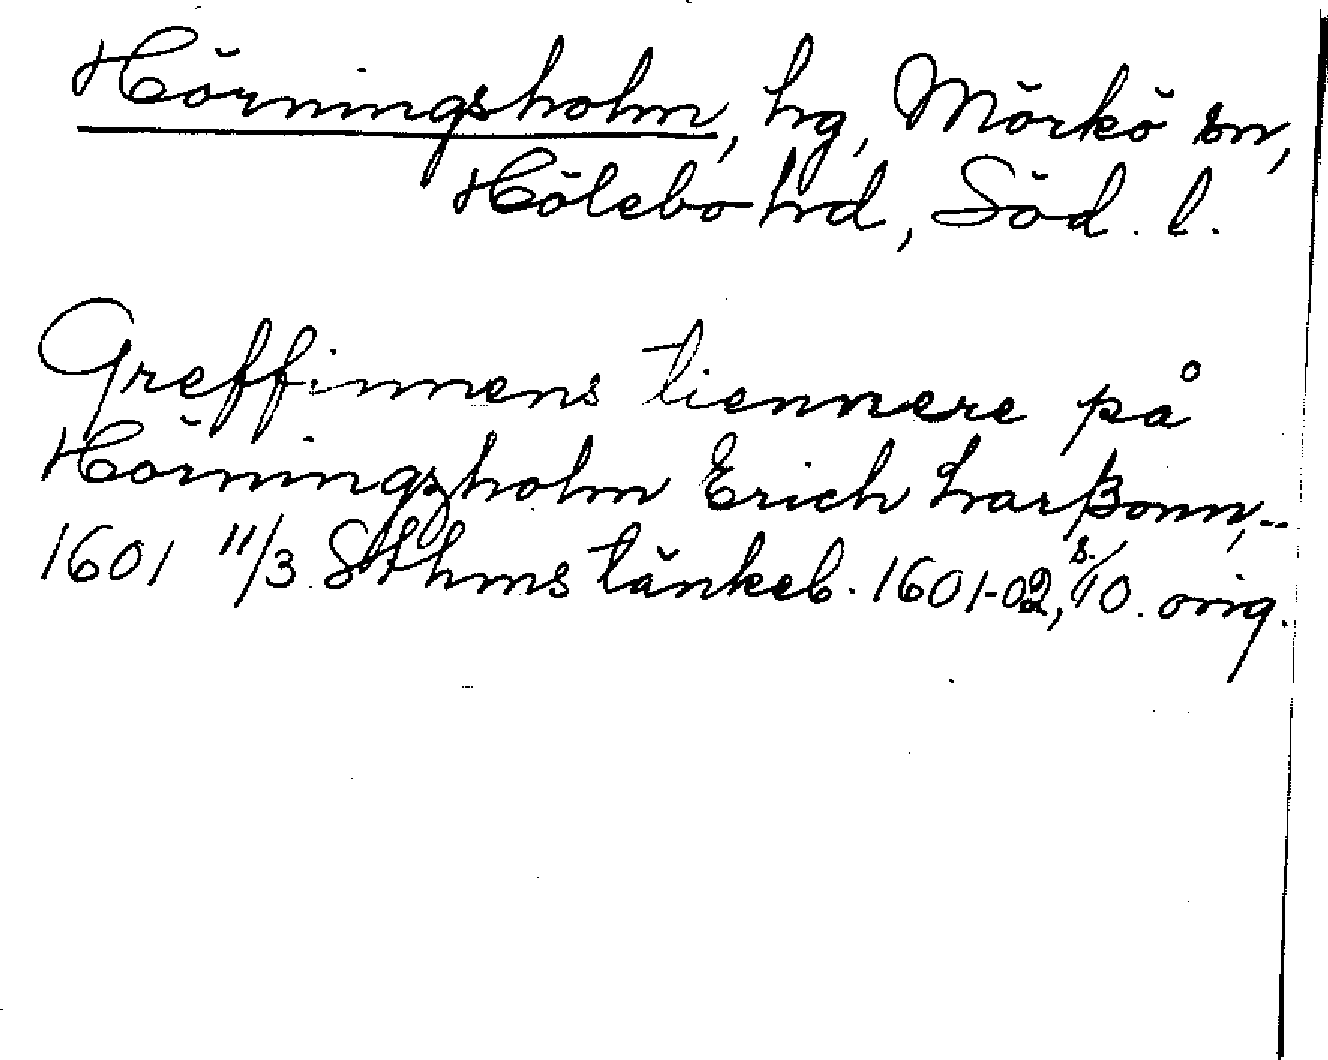 Hörningsholm, hg, Mörkö sn,
Hölebo hd, Söd. l.
Greffinnens tiennere på
Hörningzholm Erich Larßonn,--
1601 11/3. Sthms tänkeb. 1601-02, s. 10. orig.